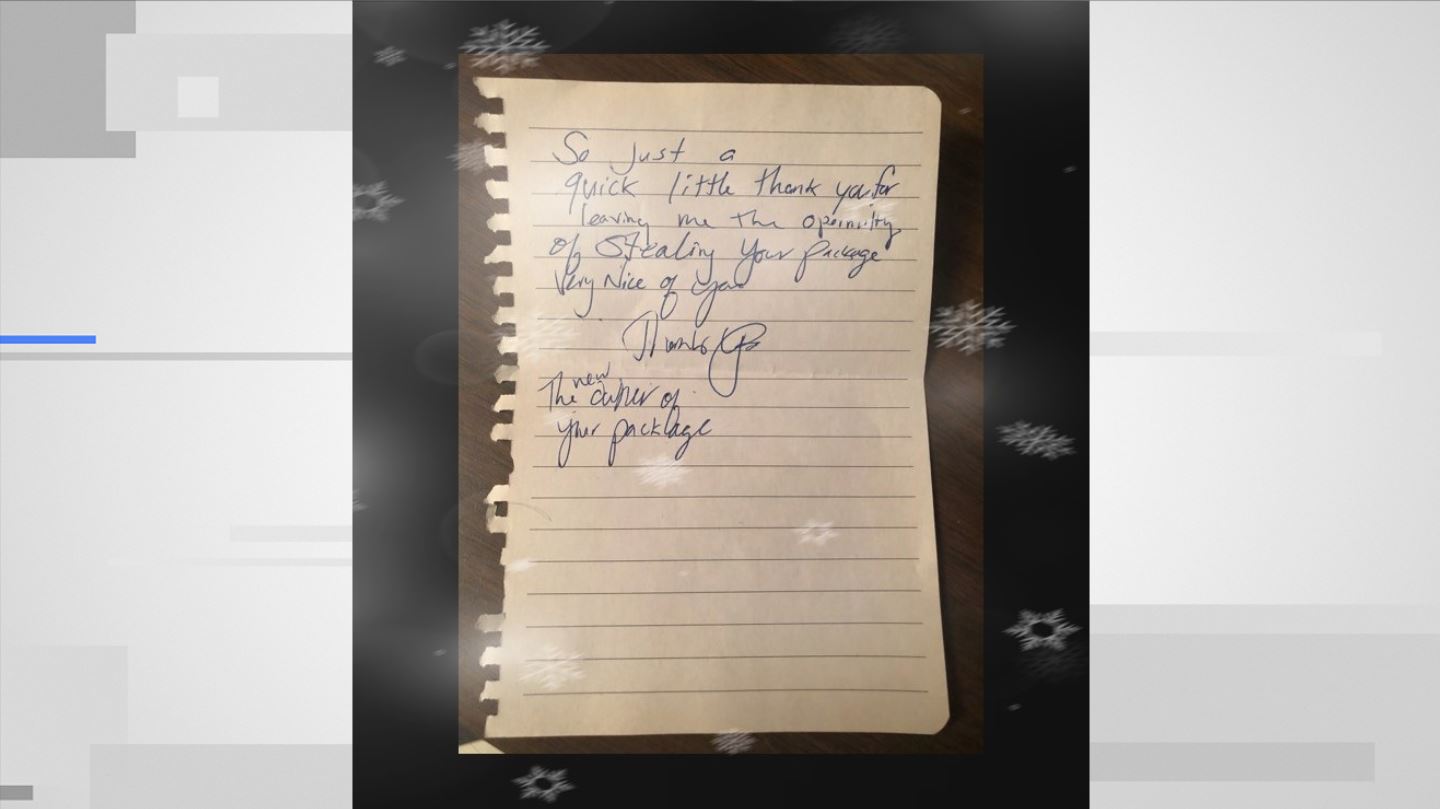 So Just a
quick little thank you for
leaving me the
of stealing Your package
Very Nice of you
Thanks
new
The owner of
your packlage